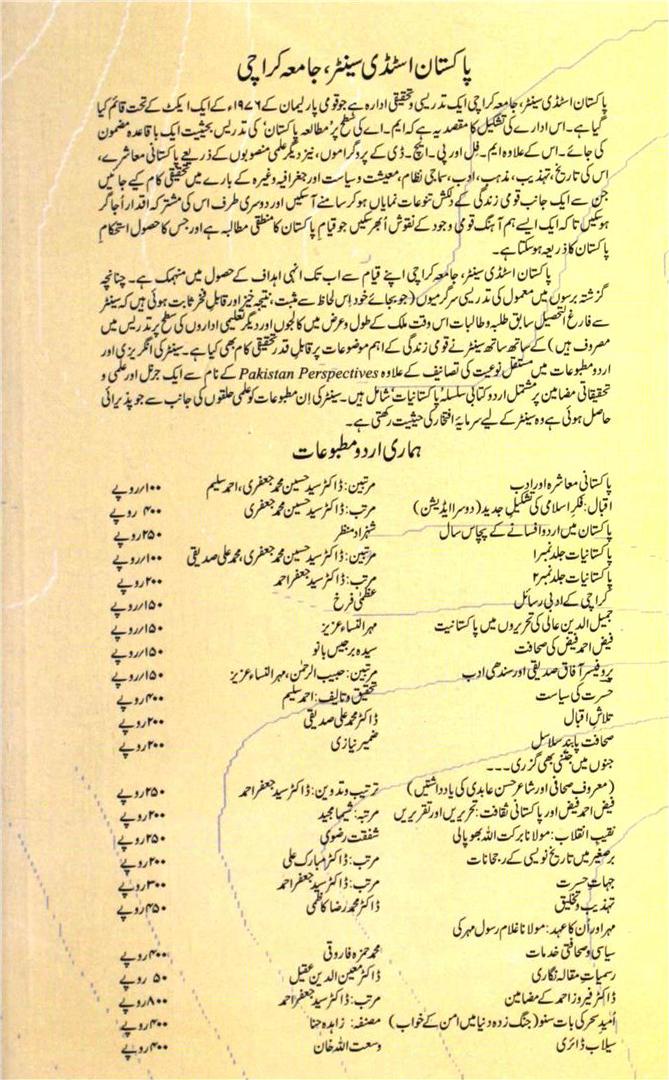 پاکستان اسٹڈی سینٹر، جامعہ کراچی
پاکستان اسٹڈی سینٹر، جامعہ کراچی ایک تدریسی و تحقیقی ادارہ ہے جو قومی پارلیمان کے ۱۹۷۶ء کے ایک ایکٹ کے تحت قائم کیا
گیا ہے۔ اس ادارے کی تشکیل کا مقصد یہ ہے کہ ایم۔اے کی سطح پر 'مطالعہ پاکستان' کی تدریس بحیثیت ایک باقاعدہ مضمون
کی جائے۔ اس کے علاوہ ایم۔فل اور پی۔ایچ۔ڈی کے پروگراموں، نیز دیگر علمی منصوبوں کے ذریعے پاکستانی معاشرے،
اس کی تاریخ، تہذیب، مذہب، ادب، سماجی نظام، معیشت و سیاست اور جغرافیہ وغیرہ کے بارے میں تحقیقی کام کیے جائیں
جن سے ایک جانب قومی زندگی کے دلکش تنوعات نمایاں ہو کر سامنے آ سکیں اور دوسری طرف اس کی مشترکہ اقدار اُجاگر
ہو سکیں تاکہ ایک ایسے ہم آہنگ قومی وجود کے نقوش اُبھر سکیں جو قیامِ پاکستان کا منطقی مطالبہ ہے اور جس کا حصول استحکامِ
پاکستان کا ذریعہ ہو سکتا ہے۔
پاکستان اسٹڈی سینٹر، جامعہ کراچی اپنے قیام سے اب تک انہی اہداف کے حصول میں منہمک ہے۔ چنانچہ
گزشتہ برسوں میں معمول کی تدریسی سرگرمیوں (جو بجائے خود اِس لحاظ سے مثبت، نتیجہ خیز اور قابلِ فخر ثابت ہوئی ہیں کہ سینٹر
سے فارغ التحصیل سابق طلبہ و طالبات اس وقت ملک کے طول و عرض میں کالجوں اور دیگر تعلیمی اداروں کی سطح پر تدریس میں
مصروف ہیں) کے ساتھ ساتھ سینٹر نے قومی زندگی کے اہم موضوعات پر قابلِ قدر تحقیقی کام بھی کیا ہے۔ سینٹر کی انگریزی اور
اردو مطبوعات میں مستقل نوعیت کی تصانیف کے علاوہ Pakistan Perspectives کے نام سے ایک جرنل اور علمی و
تحقیقاتی مضامین پر مشتمل اردو کتابی سلسلہ 'پاکستانیات' شامل ہیں۔ سینٹر کی اِن مطبوعات کو علمی حلقوں کی جانب سے جو پذیرائی
حاصل ہوئی ہے وہ سینٹر کے لیے سرمایۂ افتخار کی حیثیت رکھتی ہے۔
ہماری اردو مطبوعات
پاکستانی معاشرہ اور ادب مرتبین: ڈاکٹر سید حسین محمد جعفری، احمد سلیم ۱۰۰/روپے
اقبال: فکر اسلامی کی تشکیلِ جدید (دوسرا ایڈیشن) مرتب: ڈاکٹر سید حسین محمد جعفری ۴۰۰ روپے
پاکستان میں اردو افسانے کے پچاس سال شہزاد منظر ۲۵۰ روپے
پاکستانیات جلد نمبر ۱ مرتبین: ڈاکٹر سید حسین محمد جعفری، محمد علی صدیقی ۱۰۰/روپے
پاکستانیات جلد نمبر ۲ مرتب: ڈاکٹر سید جعفر احمد ۲۰۰ روپے
کراچی کے ادبی رسائل عظمیٰ فرخ ۱۵۰/روپے
جمیل الدین عالی کی تحریروں میں پاکستانیت مہر النساء عزیز ۱۵۰/روپے
فیض احمد فیض کی صحافت سیدہ برجیس بانو ۱۵۰/روپے
پروفیسر آفاق صدیقی اور سندھی ادب مرتبین: حبیب الرحمٰن، مہر النساء عزیز ۱۵۰/روپے
حسرت کی سیاست تحقیق و تالیف: احمد سلیم ۴۰۰ روپے
تلاشِ اقبال ڈاکٹر محمد علی صدیقی ۲۰۰ روپے
صحافت پابندِ سلاسل ضمیر نیازی ۲۰۰ روپے
جنوں میں جتنی بھی گزری ۔۔۔
(معروف صحافی اور شاعر حسن عابدی کی یادداشتیں) ترتیب و تدوین: ڈاکٹر سید جعفر احمد ۲۵۰ روپے
فیض احمد فیض اور پاکستانی ثقافت: تحریریں اور تقریریں مرتبہ: شیما مجید ۲۰۰ روپے
نقیبِ انقلاب: مولانا برکت اللہ بھوپالی شفقت رضوی ۲۵۰ روپے
برصغیر میں تاریخ نویسی کے رجحانات مرتب: ڈاکٹر مبارک علی ۲۰۰ روپے
جہاتِ حسرت مرتب: ڈاکٹر سید جعفر احمد ۳۰۰ روپے
تہذیب و تخلیق ڈاکٹر محمد رضا کاظمی ۴۵۰ روپے
مہر اور اُن کا عہد: مولانا غلام رسول مہر کی
سیاسی و صحافتی خدمات محمد حمزہ فاروقی ۴۰۰ روپے
رسمیاتِ مقالہ نگاری ڈاکٹر معین الدین عقیل ۵۰ روپے
ڈاکٹر فیروز احمد کے مضامین مرتب: ڈاکٹر سید جعفر احمد ۸۰۰ روپے
اُمید سحر کی بات سنو (جنگ زدہ دنیا میں امن کے خواب) مصنفہ: زاہدہ حنا ۴۰۰ روپے
سیلاب ڈائری وسعت اللہ خان ۴۰۰ روپے